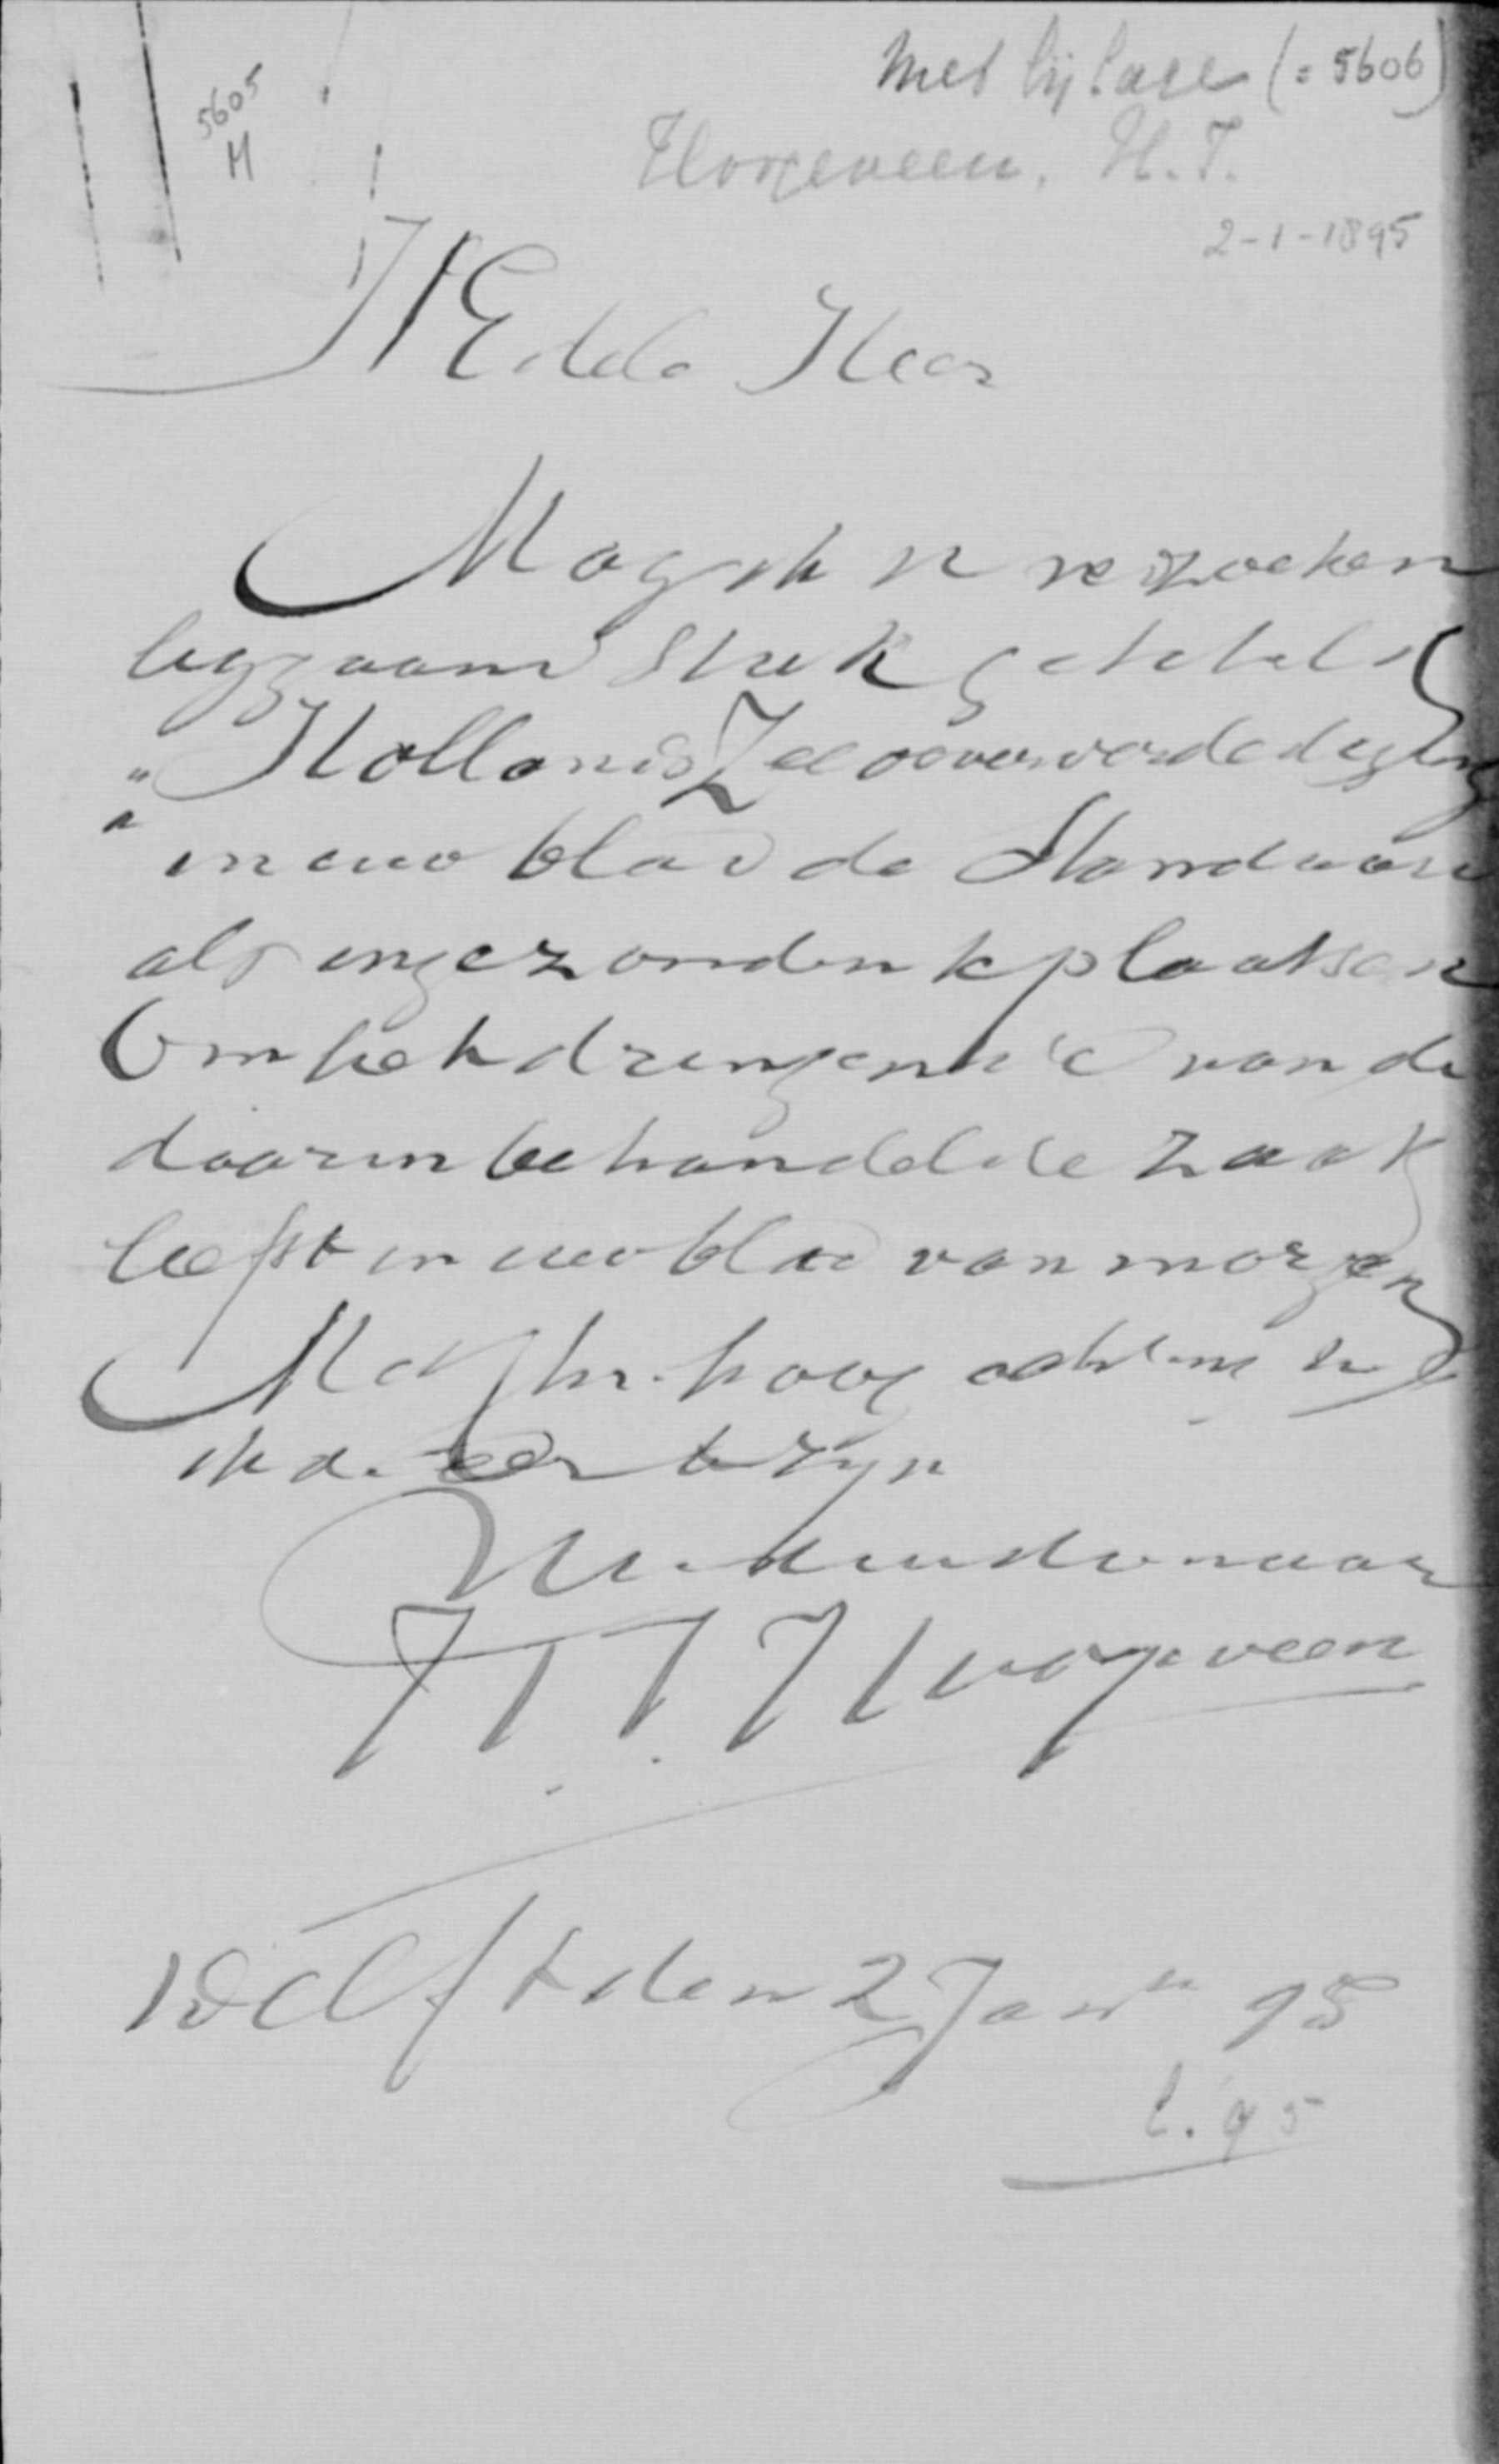 met bijlage (= 5606)
5605
H
Hoogeveen, H. T.
2-1-1895
HEdele Heer
Mag ik u verzoeken
bijgaand Stuk getiteld
"Hollands Zeeoeververdediging
" in uw blad de Standaard
als ingezonden te plaatsen
Om het dringende van de
daarin behandelde zaak
liefst in uw blad van morgen
Met hoogachting
ik de eer te zyn
Uw dienaar
H T Hoogeveen
Delft den 2 Jan 95
l. 95